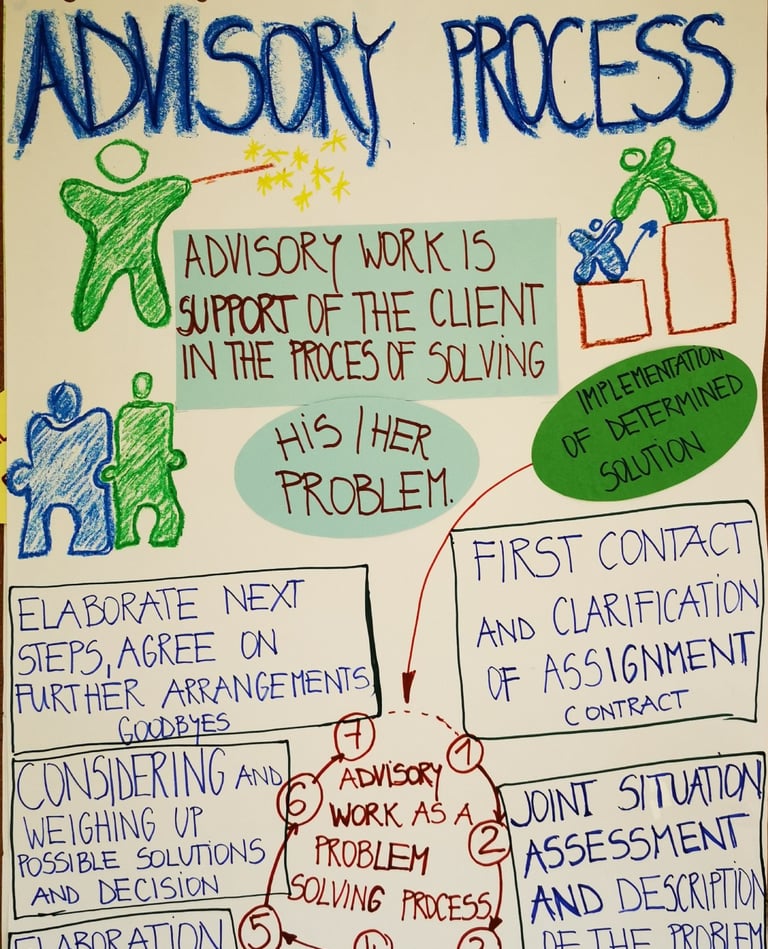 ADVISORY PROCESS
ADVISORY WORK IS
SUPPORT OF THE CLIENT
IN THE PROCES OF SOLVING
HIS / HER
PROBLEM.
IMPLEMENTATION
OF DETERMINED
SOLUTION
FIRST CONTACT
AND CLARIFICATION
OF ASSIGNMENT
CONTRACT
ELABORATE NEXT
STEPS, AGREE ON
FURTHER ARRANGEMENTS,
GOODBYES
CONSIDERING AND
WEIGHING UP
POSSIBLE SOLUTIONS
AND DECISION
ELABORATION
7
1
6
2
5
4
3
ADVISORY
WORK AS A
PROBLEM
SOLVING PROCESS
JOINT SITUATION
ASSESSMENT
AND DESCRIPTION
OF THE PROBLEM